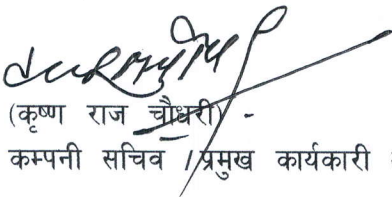 (कृष्ण राज चौधरी) -
कम्पनी सचिव / प्रमुख कार्यकारी